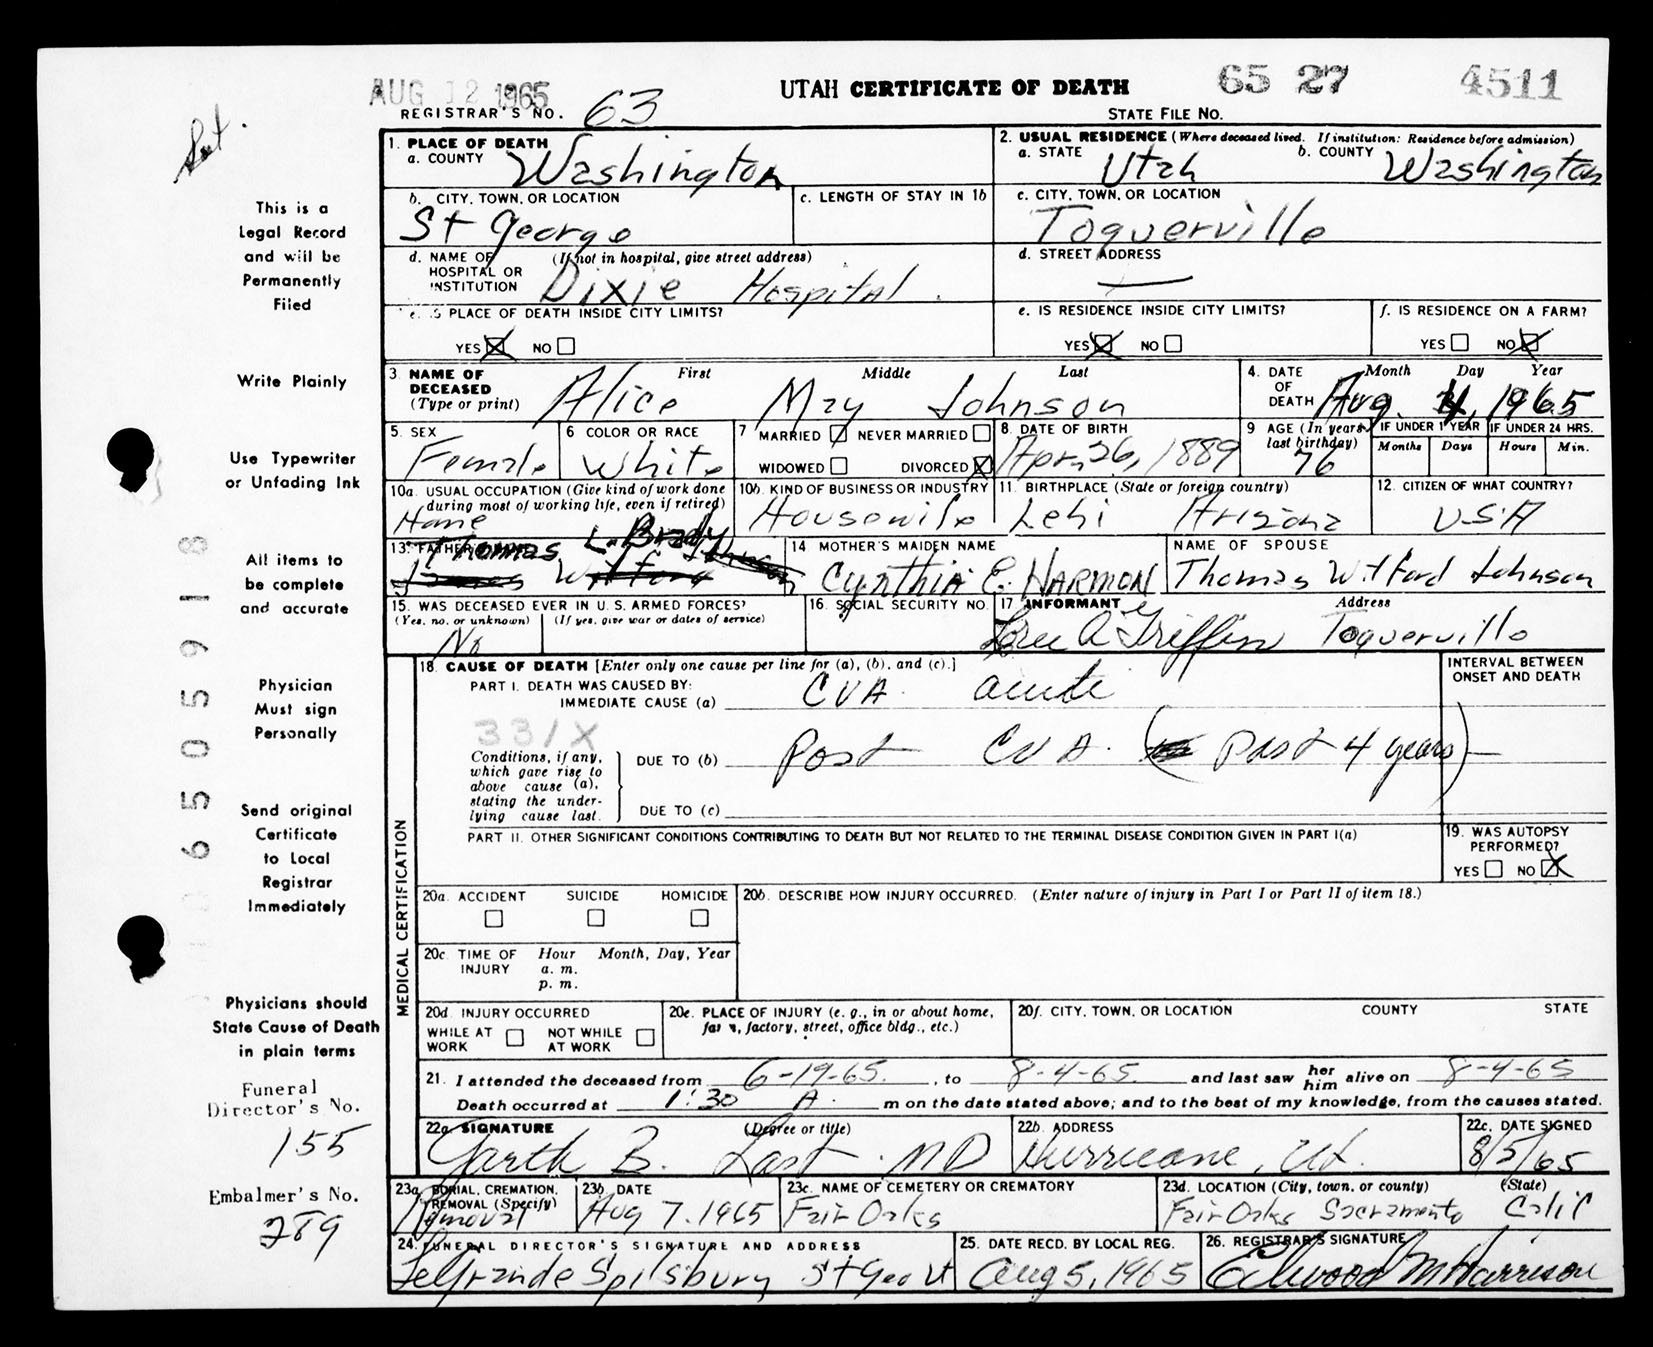 AUG 12 1965
UTAH CERTIFICATE OF DEATH
65 27 4511
REGISTRAR'S NO. 63
STATE FILE NO.
This is a
Legal Record
and will be
Permanently
Filed
Write Plainly
Use Typewriter
or Unfading Ink
All items to
be complete
and accurate
Physician
Must sign
Personally
Send original
Certificate
to Local
Registrar
Immediately
Physicians should
State Cause of Death
in plain terms
Funeral
Director's No.
155
Embalmer's No.
289
6505918
1. PLACE OF DEATH
a. COUNTY Washington
2. USUAL RESIDENCE (Where deceased lived. If institution: Residence before admission)
a. STATE Utah b. COUNTY Washington
b. CITY, TOWN, OR LOCATION
St George
c. LENGTH OF STAY IN 1b
c. CITY, TOWN, OR LOCATION
Toquerville
d. NAME OF (If not in hospital, give street address)
HOSPITAL OR
INSTITUTION Dixie Hospital
d. STREET ADDRESS
—
e. IS PLACE OF DEATH INSIDE CITY LIMITS?
YES X NO
e. IS RESIDENCE INSIDE CITY LIMITS?
YES X NO
f. IS RESIDENCE ON A FARM?
YES NO X
3. NAME OF DECEASED (Type or print)
First Middle Last
Alice May Johnson
4. DATE OF DEATH
Month Day Year
Aug. 4, 1965
5. SEX
Female
6 COLOR OR RACE
White
7 MARRIED NEVER MARRIED
WIDOWED DIVORCED X
8. DATE OF BIRTH
Apr. 26, 1889
9 AGE (In years last birthday)
76
IF UNDER 1 YEAR
Months Days
IF UNDER 24 HRS.
Hours Min.
10a. USUAL OCCUPATION (Give kind of work done
during most of working life, even if retired)
Home
10b. KIND OF BUSINESS OR INDUSTRY
Housewife
11. BIRTHPLACE (State or foreign country)
Lehi Arizona
12. CITIZEN OF WHAT COUNTRY?
USA
13. FATHER'S NAME
Thomas L. Brady
14 MOTHER'S MAIDEN NAME
Cynthia E. HARMON
NAME OF SPOUSE
Thomas Wilford Johnson
15. WAS DECEASED EVER IN U.S. ARMED FORCES?
(Yes, no, or unknown) (If yes, give war or dates of service)
No
16. SOCIAL SECURITY NO.
17 INFORMANT Address
Griffin Toquerville
MEDICAL CERTIFICATION
18. CAUSE OF DEATH [Enter only one cause per line for (a), (b), and (c).]
INTERVAL BETWEEN
ONSET AND DEATH
PART I. DEATH WAS CAUSED BY:
IMMEDIATE CAUSE (a) CVA acute
331X
Conditions, if any,
which gave rise to
above cause (a),
stating the under-
lying cause last.
DUE TO (b) Post CVA. (Past 4 years)
DUE TO (c)
PART II. OTHER SIGNIFICANT CONDITIONS CONTRIBUTING TO DEATH BUT NOT RELATED TO THE TERMINAL DISEASE CONDITION GIVEN IN PART I(a)
19. WAS AUTOPSY
PERFORMED?
YES NO X
20a. ACCIDENT SUICIDE HOMICIDE
20b. DESCRIBE HOW INJURY OCCURRED. (Enter nature of injury in Part I or Part II of item 18.)
20c. TIME OF INJURY
Hour Month, Day, Year
a. m.
p. m.
20d. INJURY OCCURRED
WHILE AT WORK NOT WHILE AT WORK
20e. PLACE OF INJURY (e. g., in or about home,
farm, factory, street, office bldg., etc.)
20f. CITY, TOWN, OR LOCATION COUNTY STATE
21. I attended the deceased from 6-19-65. , to 8-4-65. and last saw her him alive on 8-4-65
Death occurred at 1:30 A. m on the date stated above; and to the best of my knowledge, from the causes stated.
22a. SIGNATURE (Degree or title)
Garth B. Last. MD
22b. ADDRESS
Hurricane, Ut.
22c. DATE SIGNED
8/5/65
23a. BURIAL, CREMATION,
REMOVAL (Specify)
Removal
23b. DATE
Aug 7. 1965
23c. NAME OF CEMETERY OR CREMATORY
Fair Oaks
23d. LOCATION (City, town, or county) (State)
Fair Oaks Sacramento Calif
24. FUNERAL DIRECTOR'S SIGNATURE AND ADDRESS
LeGrande Spilsbury St Geo Ut
25. DATE RECD. BY LOCAL REG.
Aug 5, 1965
26. REGISTRAR'S SIGNATURE
Ellwood M Harrison